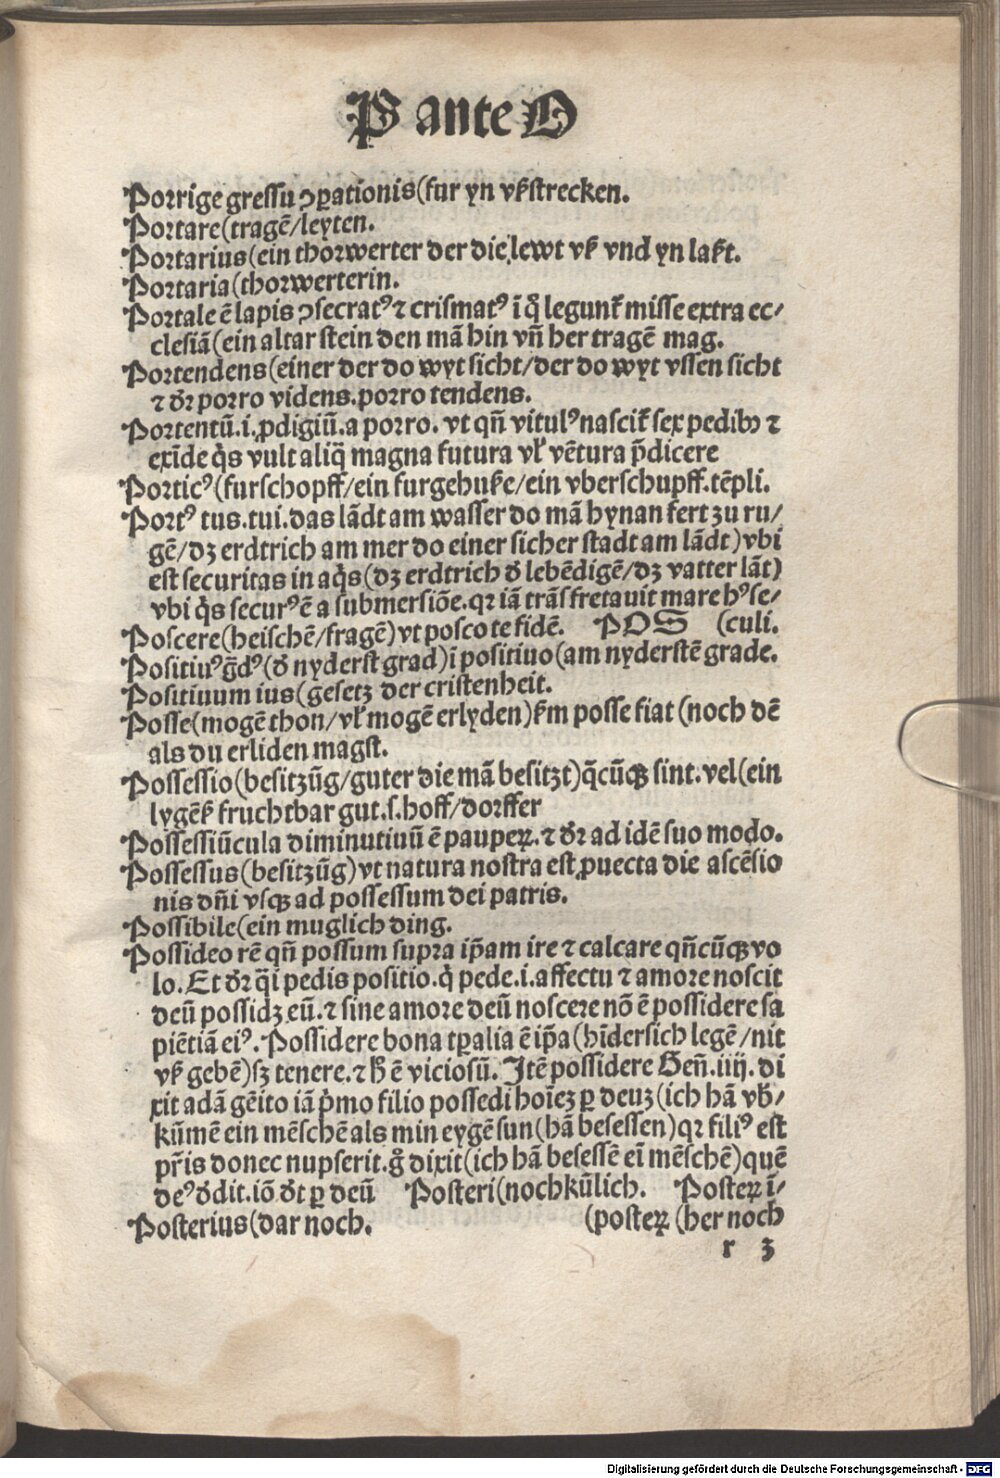 P ante O
Porrige gressu ꝯꝑationis(fur yn vßstrecken.
Portare(tragē/leyten.
Portarius(ein thorwerter der die lewt vß vnd yn laßt.
Portaria(thorwerterin.
Portale ē lapis ꝯsecratꝰ ⁊ crismatꝰ ī q̊ legunt᷑ misse extra ec/
clesiā(ein altar stein den mā hin vñ her tragē mag.
Portendens(einer der do wyt sicht/der do wyt vssen sicht
⁊ dr̄ porro videns.porro tendens.
Portentū.i.ꝓdigiū.a porro. vt qñ vitulꝰ nascit᷑ sex pedibꝫ ⁊
exīde q̇s vult aliq̄ magna futura vl᷑ vētura p̄dicere
Porticꝰ(furschopff/ein furgehuße/ein vberschupff.tēpli.
Portꝰ tus.tui.das lādt am wasser do mā hynan fert zu ru/
gē/dz erdtrich am mer do einer sicher stadt am lādt)vbi
est securitas in aq̇s(dz erdtrich d̄ lebēdigē/dz vatter lāt)
vbi q̇s securꝰ ē a submersiōe.qꝛ iā trāsfretauit mare hꝰ se/
Poscere(heischē/fragē)vt posco te fidē. POS (culi.
Positiuꝰ ḡdꝰ(d̄ nyderst grad)ī positiuo(am nyderstē grade.
Positiuum ius(gesetz der cristenheit.
Posse(mogē thon/vl᷑ mogē erlyden)ßm posse fiat(noch dē
als du erliden magst.
Possessio(besitzūg/guter die mā besitzt)q̄cūqꝫ sint.vel(ein
lygēß fruchtbar gut.s.hoff/dorffer
Possessiūcula diminutiuū ē pauperꝝ.⁊ dr̄ ad idē suo modo.
Possessus(besitzūg)vt natura nostra est ꝓuecta die ascēsio
nis dñi vsqꝫ ad possessum dei patris.
Possibile(ein muglich ding.
Possideo rē qñ possum supra ip̄am ire ⁊ calcare qñcūqꝫ vo
lo. Et dr̄ q̄i pedis positio.q̇ pede.i.affectu ⁊ amore noscit
deū possidꝫ eū.⁊ sine amore deū noscere nō ē possidere sa
piētiā eiꝰ. Possidere bona tꝑalia ē ip̄a(hīdersich legē/nit
vß gebē)sꝫ tenere.⁊ h̄ ē viciosū. Itē possidere Geñ.iiij. di
xit adā gēito iā p̄mo filio possedi hoīeꝫ ꝑ deuꝫ(ich hā vb̄/
kūmē ein mēschē als min eygē sun(hā besessen)qꝛ filiꝰ est
pr̄is donec nupserit.g̊ dixit(ich hā besessē eī mēschē)quē
deꝰ d̄dit.iō d̄t ꝑ deū Posteri(nochkūlich. Posteꝝ ī/
Posterius(dar noch. (posteꝝ (her noch
r 3
Digitalisierung gefördert durch die Deutsche Forschungsgemeinschaft - DFG